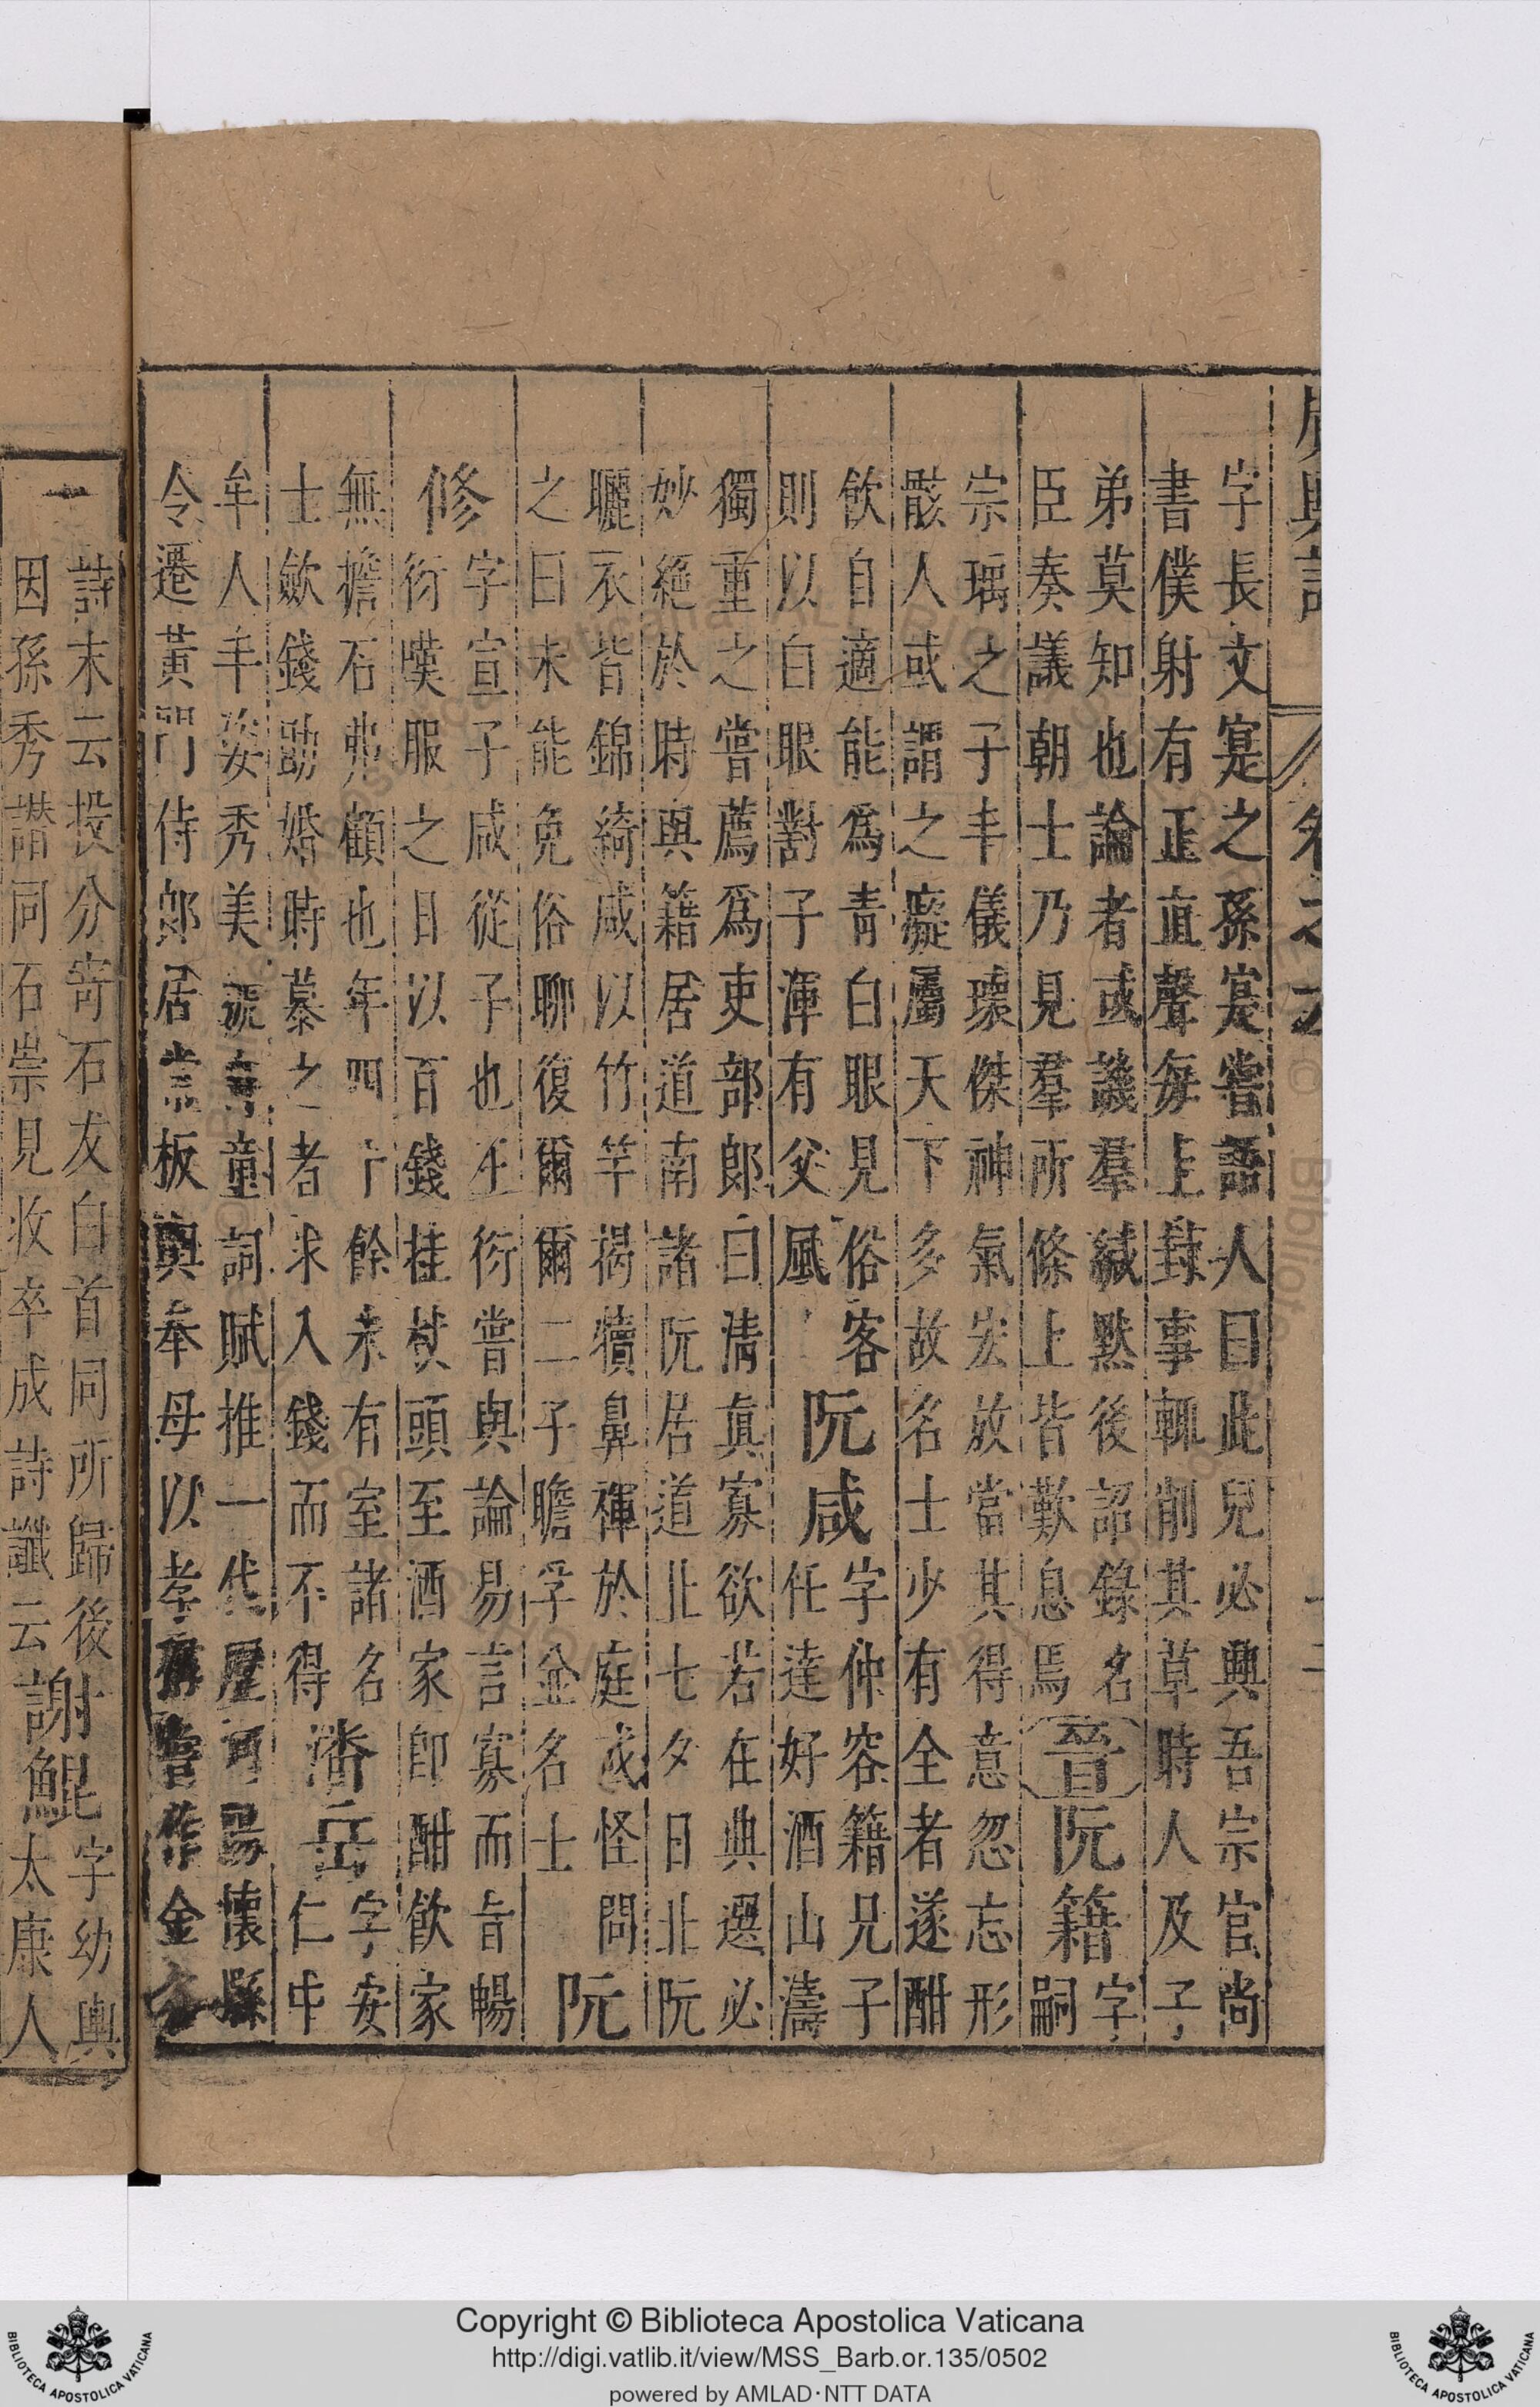 字長文寔之孫寔嘗語人曰此兒必興吾宗官尚
書僕射有正直聲每上封事輒削其草時人及子
弟莫知也論者或譏羣緘默後詔錄名
臣奏議朝士乃見羣所條上皆歎息焉
晉
阮籍
字
嗣
宗瑀之子丰儀瓌傑神氣宏放當其得意忽忘形
骸人或謂之癡屬天下多故名士少有全者遂酣
飲自適能爲青白眼見俗客
則以白眼對子渾有父風
阮咸
字仲容籍兄子
任達好酒山濤
獨重之嘗薦爲吏部郎曰清真寡欲若在典選必
妙絕於時與籍居道南諸阮居道北七夕日北阮
曬衣皆錦綺咸以竹竿揭犢鼻褌於庭或怪問
之曰未能免俗聊復爾爾二子瞻孚金名士
阮
修
字宣子咸從子也王衍嘗與論易言寡而旨暢
衍嘆服之日以百錢挂杖頭至酒家卽酣飲家
無擔石弗顧也年四十餘未有室諸名
士歛錢助婚時慕之者求入錢而不得
潘岳
字安
仁中
牟人丰姿秀美號奇童詞賦推一代歷河陽懷縣
令遷黃門侍郎居常板輿奉母以孝稱嘗作金谷
一
詩末云投分寄石友白首同所歸後
因孫秀譖同石崇見收卒成詩讖云
謝鯤
字幼輿
太康人
Copyright © Biblioteca Apostolica Vaticana
http://digi.vatlib.it/view/MSS_Barb.or.135/0502
powered by AMLAD·NTT DATA
BIBLIOTECA APOSTOLICA VATICANA
BIBLIOTECA APOSTOLICA VATICANA